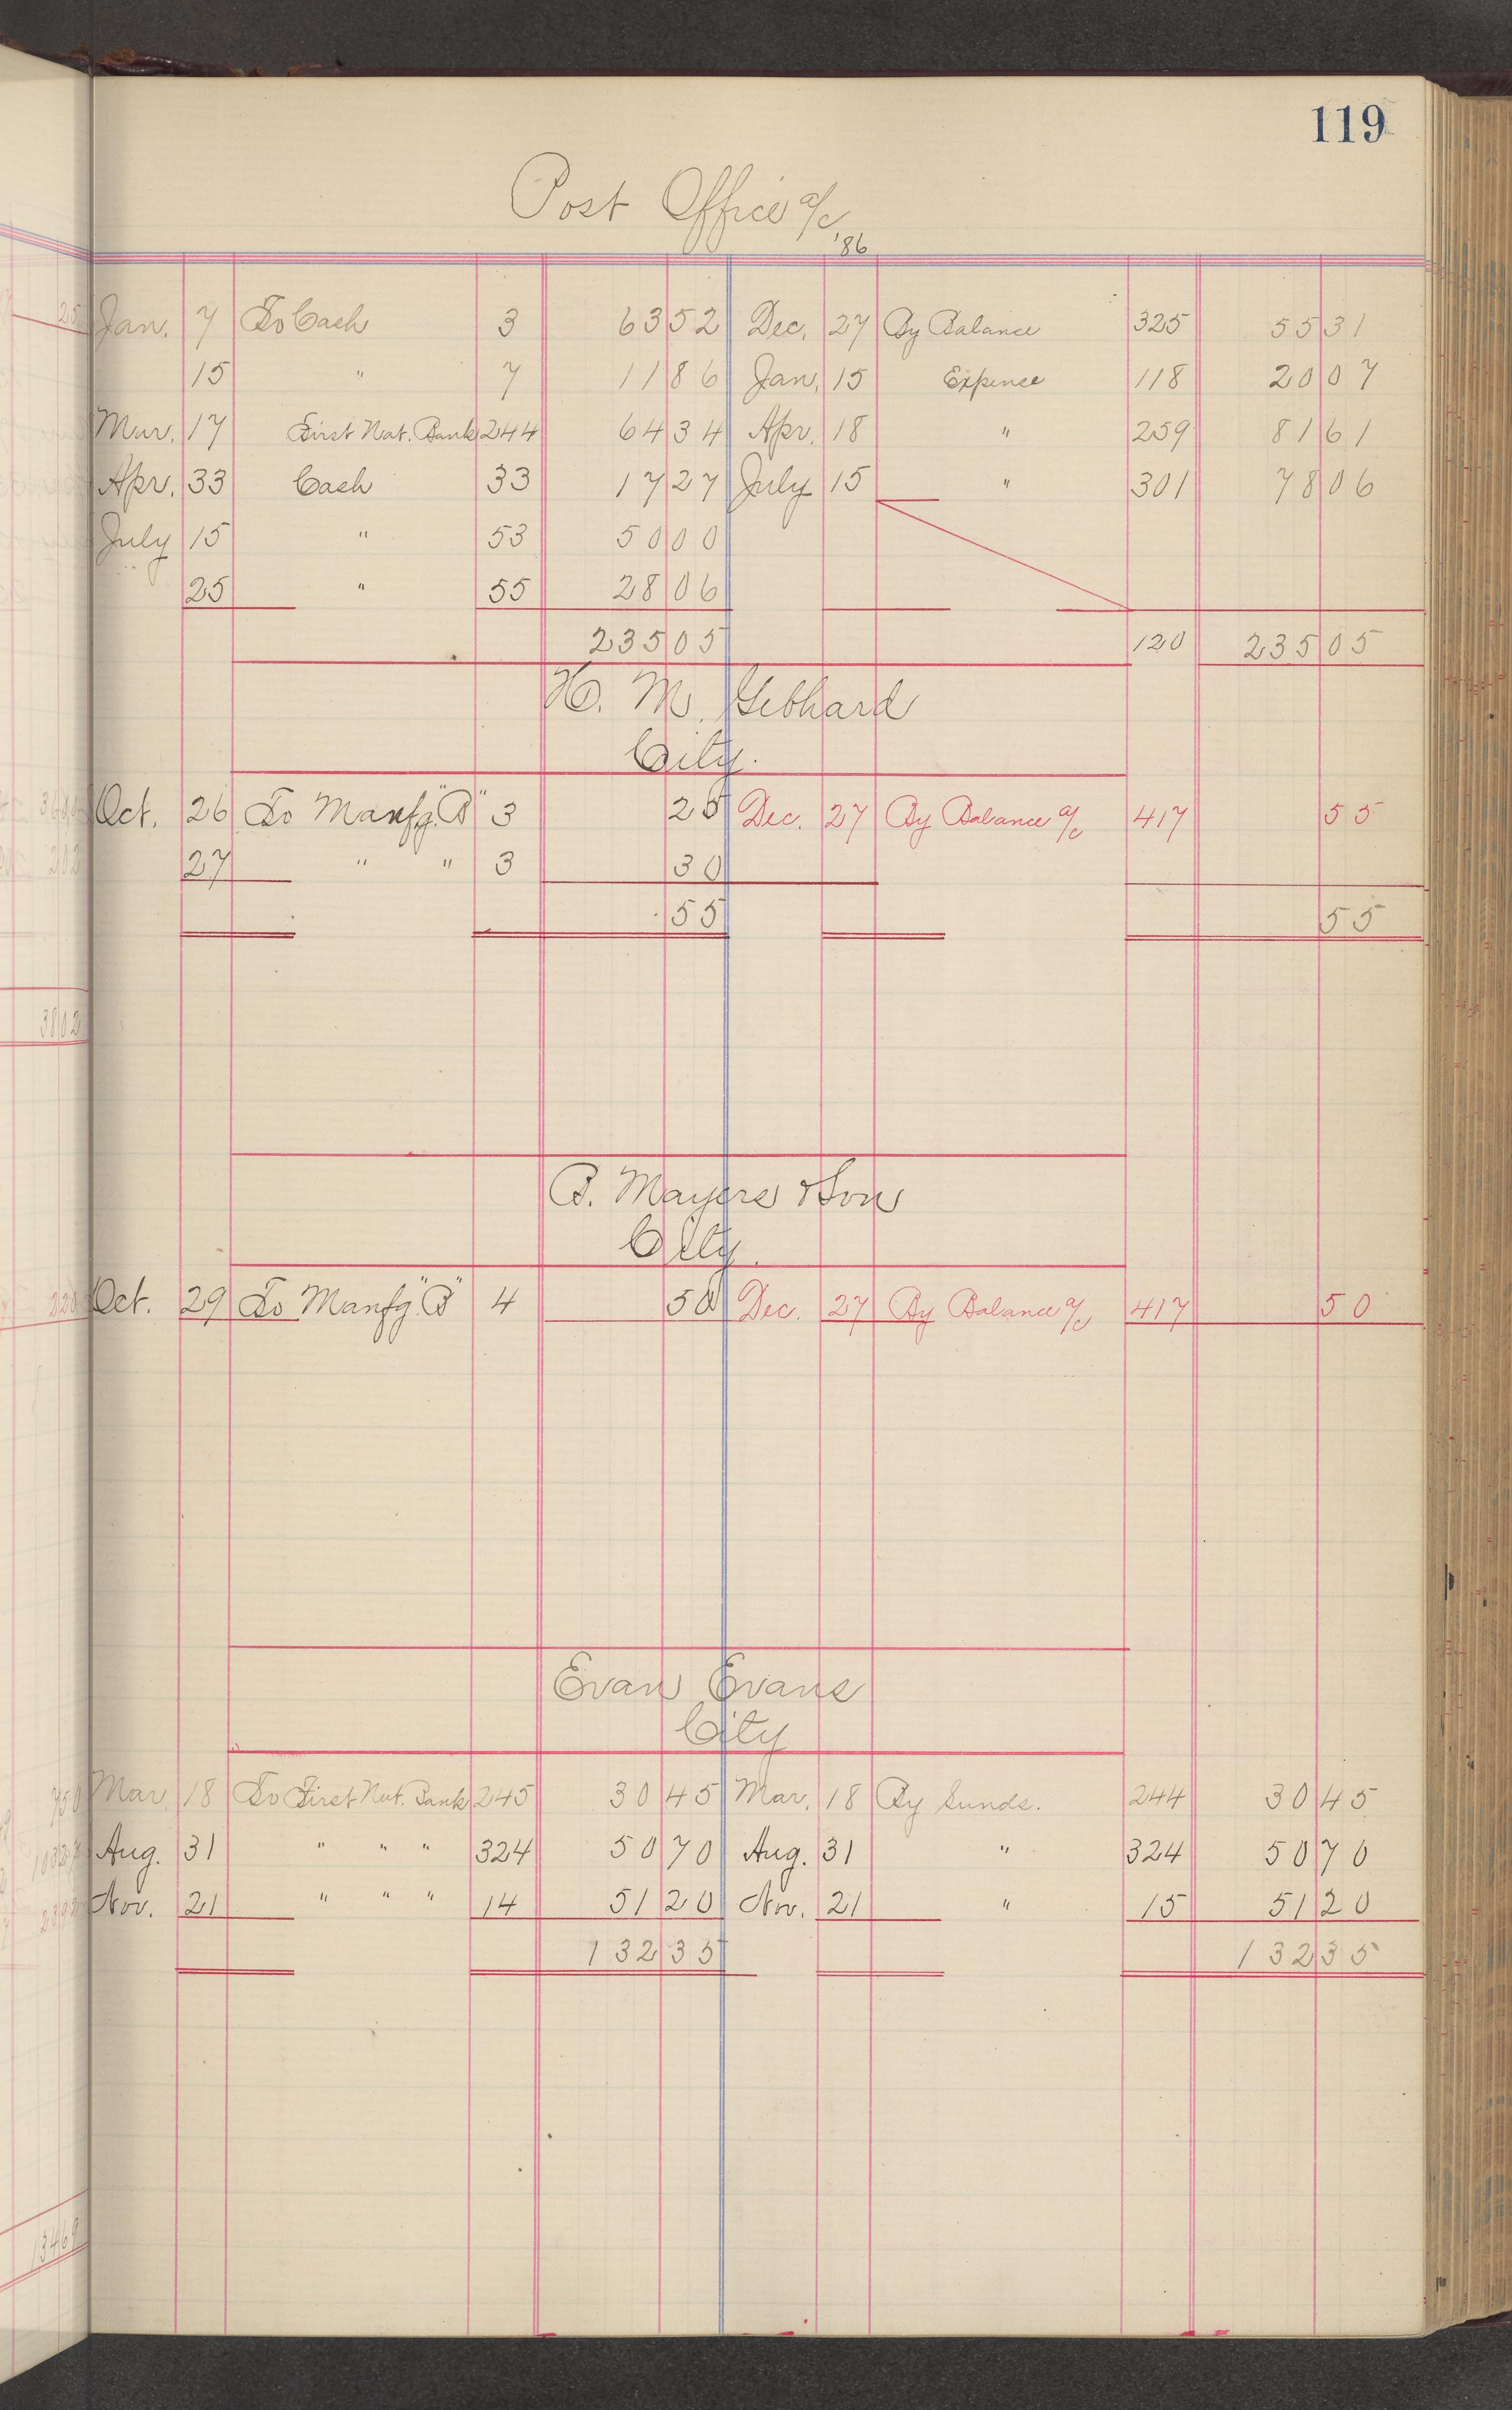 119
Post Office a/c
'86
Jan. 7 To Cash 3 63 52 Dec. 27 By Balance 325 55 31
15 " 7 11 86 Jan. 15 Expense 118 20 07
Mar. 17 First Nat. Bank 244 64 34 Apr. 18 " 259 81 61
Apr. 33 Cash 33 17 27 July 15 " 301 78 06
July 15 " 53 50 00
25 " 55 28 06
235 05 120 235 05
H. M. Gebhard
City.
Oct. 26 To Manfg. "B" 3 25 Dec. 27 By Balance a/c 417 55
27 " " 3 30
55 55
B. Mayers & Son
City.
Oct. 29 To Manfg. "B" 4 50 Dec. 27 By Balance a/c 417 50
Evan Evans
City
Mar. 18 To First Nat. Bank 245 30 45 Mar. 18 By Sunds. 244 30 45
Aug. 31 " " " 324 50 70 Aug. 31 " 324 50 70
Nov. 21 " " " 14 51 20 Nov. 21 " 15 51 20
132 35 132 35